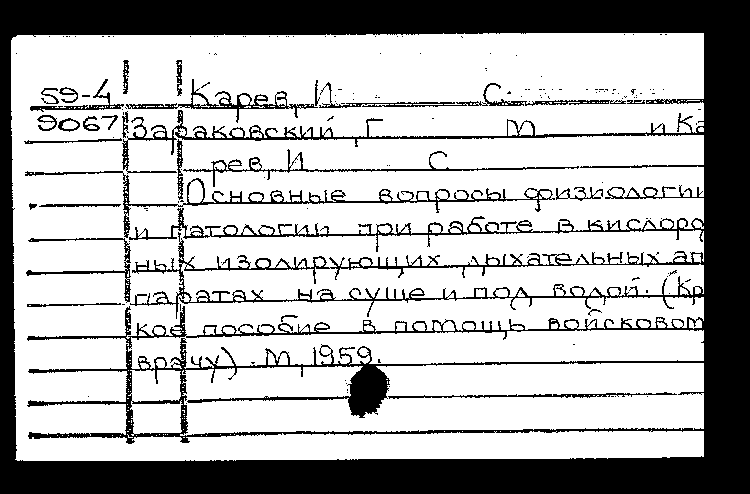 59-4 Карев, И С.
9067 Зараковский, Г М и Ка
рев, И С
Основные вопросы физиологии
и патологии при работе в кислород
ных изолирующих дыхательных ап
паратах на суше и под водой. (Кр
кое пособие в помощь войсковом
врачу). М, 1959.